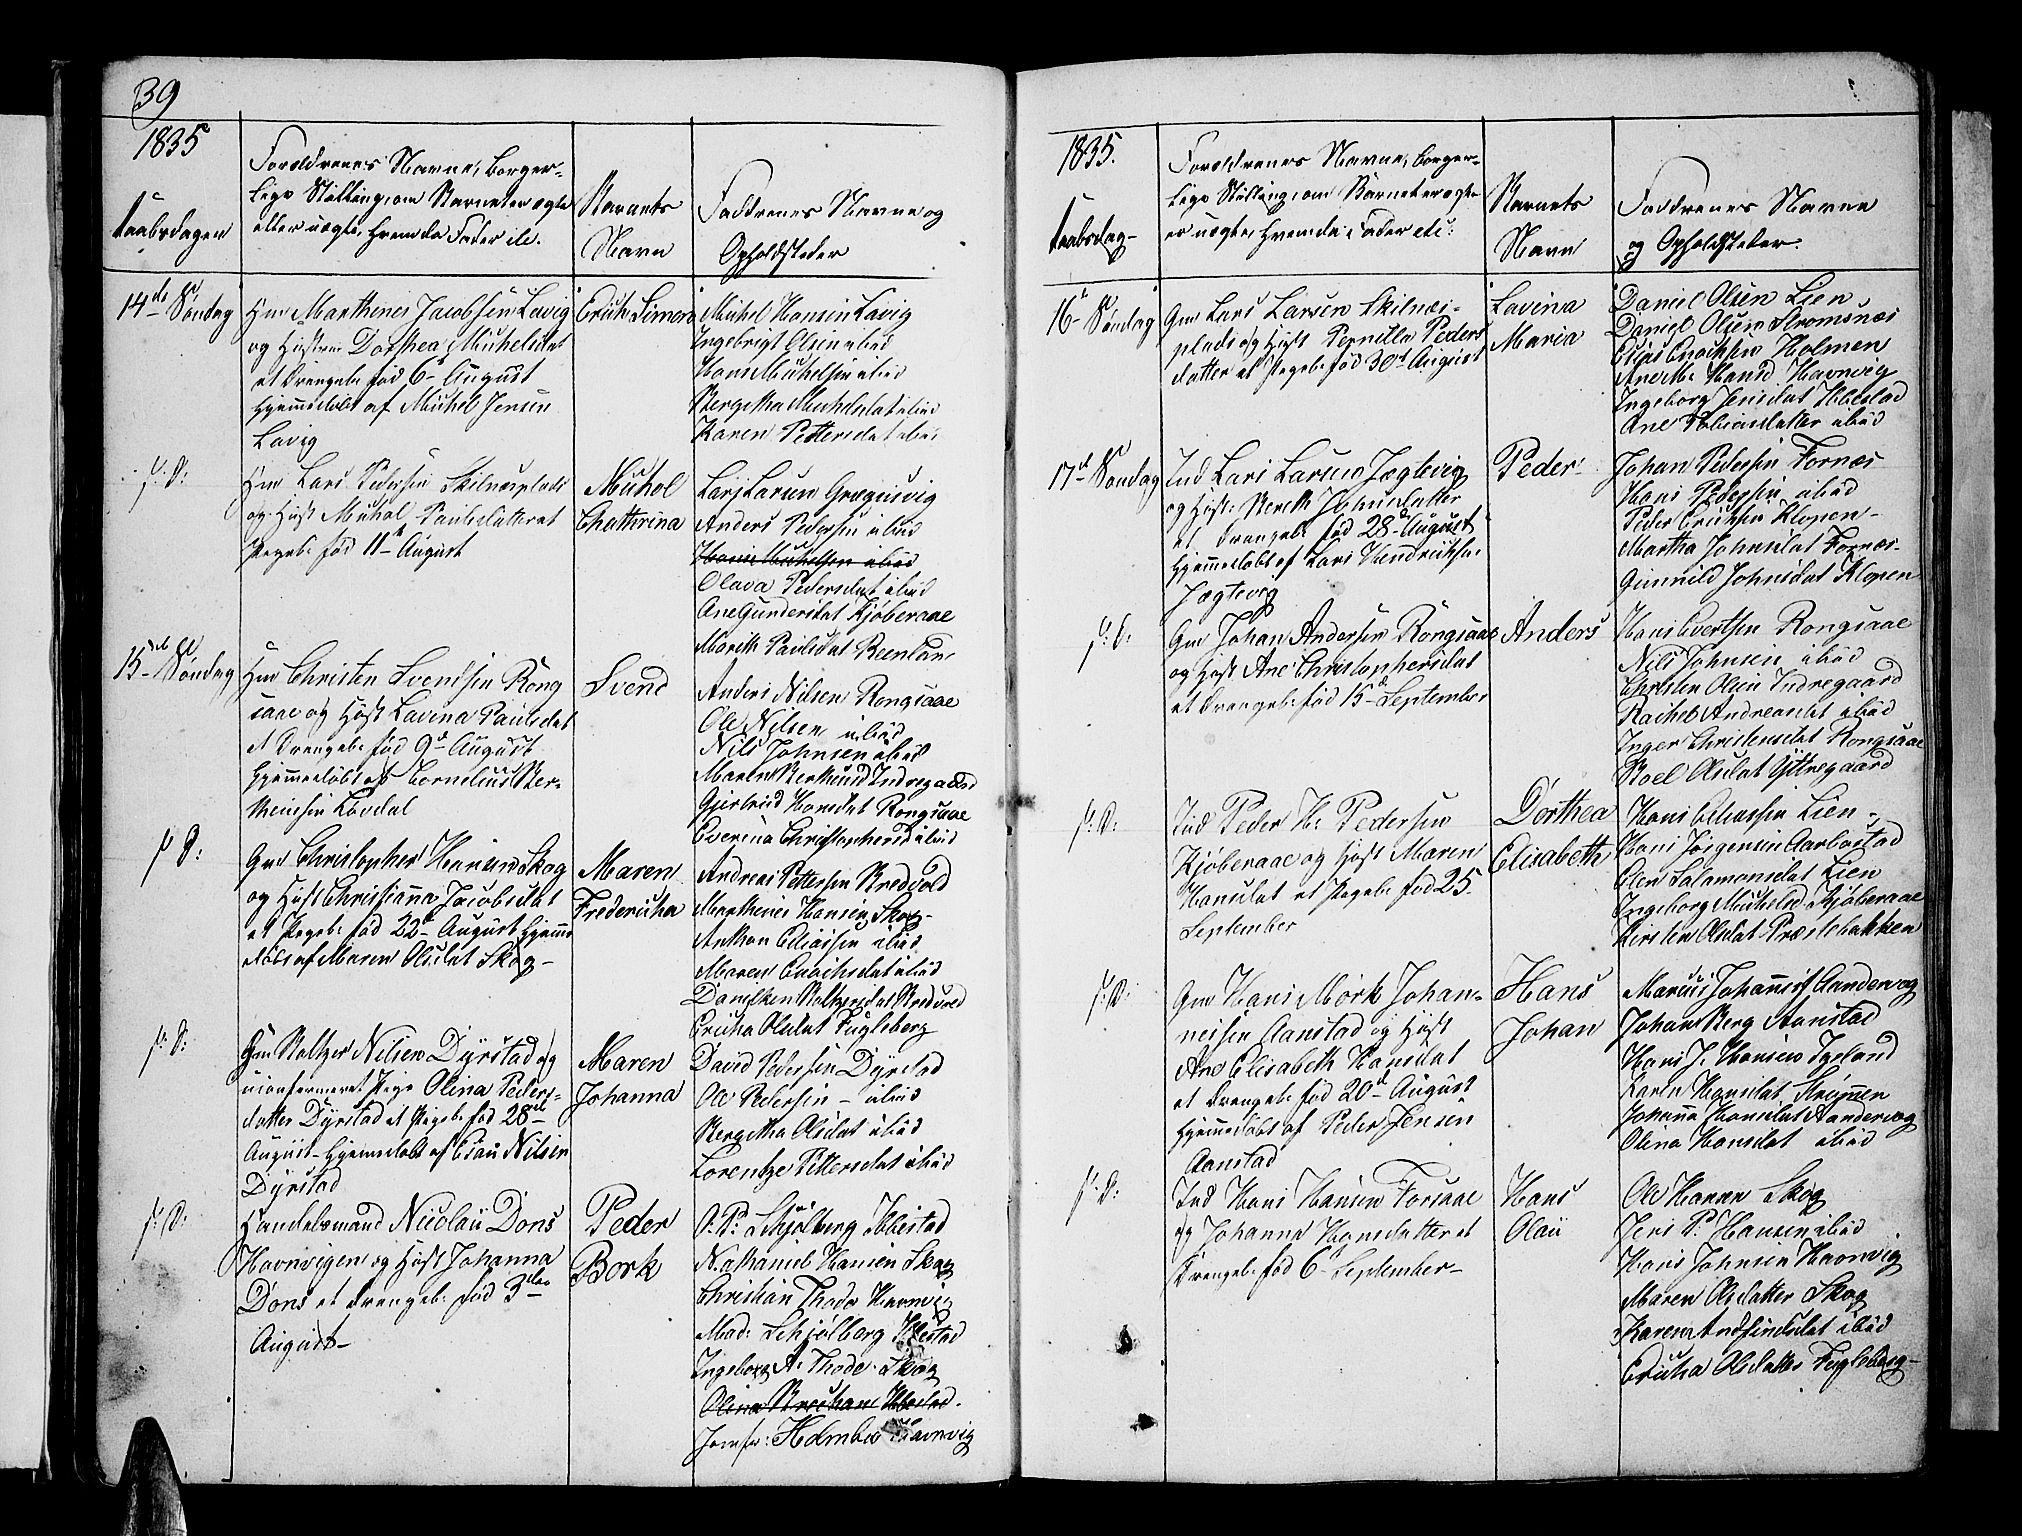 39
1835
Daabsdagen
Forældrenes Navne, borger-
lige Stilling, om Barnet er ægte
eller uægte, hvem da Fader etc.
Barnets
Navn
Faddrenes Navne og
Opholdsteder
14de Søndag
Gm Marthines Jacobsen Lavig
og Hustrue Dorthea Michelsdat
et Drengeb: fød 6te August
hjemmedøbt af Michel Jensen
Lavig
Erich Simon
Michel Hansen Lavig
Ingebrigt Olsen ibid
Hans Michelsen ibid
Bergitha Michelsdat ibid
Karen Pettersdat ibid
s: D:
Gm Lars Pedersen Skilnæsplads
og Hust Michol Paulsdatter et
Pigeb: fød 11te August
Michol
Chathrina
Lars Larsen Grægusvig
Anders Pedersen ibid
Hans Michelsen ibid
Olava Pedersdat ibid
Ane Gundersdat Kjøberaae
Marith Paulsdat Reenland
15de Søndag
Gm Christen Svendsen Rong
saae og Hust Lavina Paulsdat
et Drengeb: fød 9de August
hjemmedøbt af Cornelius Ber-
theusen Løvdal
Svend
Anders Nilsen Rongsaae
Ole Nilsen ibid
Nils Johnsen ibid
Maren Indregaard
Gjertrud Hansdat Rongsaae
Everina Christophersd ibid
s: D:
Gm Christopher Hansen Skog
og Hust Christianna Jacobsdat
et Pigeb: fød 22de August hjemme
døbt af Maren Olsdat Skog-
Maren
Fredericha
Andreas Pettersen Bredvold
Marthines Hansen Skog-
Anthon Eliassen ibid
Maren Enochsdat ibid
Danelken Baltzersdat Bredvold
Ericha Olsdat Fugleberg
s: D:
Gm Baltzer Nilsen Dyrstad og
uconfermeret Pige Olina Peders-
datter Dyrstad et Pigeb: fød 28de
August- hjemedøbt af Esau Nilsen
Dyrstad
Maren
Johanna
David Pedersen Dyrstad
Ole Pedersen - ibid
Bergitha Olsdat ibid
Lorentze Pettersdat ibid
s: D:
Handelsmand Nicolai Dons
Havnvigen og Hust Johanna
Dons et Drengeb: fød 3die
August-
Peder
Bork
O. P: Schjølberg Ibbestad
Nathaniel Hansen Skog
Christian Thode Havnvig
Mad: Schjølberg Ibbestad
Ingeborg A: Thode. Skog
Olina Ibbestad.
Jomfr: Holmboe Havnvig
1835.
Daabsdag-
Forældrenes Navne, borger-
lige Stilling, om Barnet er ægte
er uægte, hvem da Fader etc:
Barnets
Navn
Faddrenes Navne
og Opholdsteder.
16de Søndag
Gm Lars Larsen Skilnæs-
plads og Hust Pernilla Peders
datter et Pigeb: fød 30te August
Lavina
Maria
Daniel Olsen Lien
Daniel Olsen Stromsnæs
Esias Enochsen Holmen
Ane M: Hansd. Havnvig
Ingeborg Jensdat Ibbestad
Ane Tobiasdatter ibid
17de Søndag
Ind Lars Larsen Jægtevig
og Hust: Bereth Johnsdatter
et Drengeb: fød 28de August
hjemmedøbt af Lars Hendrichsen
Jægtevig
Peder-
Johan Pedersen Fornæs
Hans Pedersen ibid
Peder Erichsen Klopen-
Martha Johnsdat Fornæs-
Gunnild Johnsdat Klopen
s: D:
Gm Johan Andersen Rongsaae
og Hust Ane Christophersdat
et Drengeb: fød 15de September
Anders
Hans Evertsen Rongsaae
Nils Johnsen ibid
Christen Olsen Indregaard
Rachel Andreasdat ibid
Inger Christensdat Rongsaae
Roel Olsdat Yttregaard
s: D:
Ind Peder H: Pedersen
Kjøberaae og Hust Maren
Hansdat et Pigeb: fød 25.
September
Dorthea
Elisabeth
Hans Eliassen Lien-
Hans Jørgensen Aarbostad
Elen Salamonsdat Lien
Ingeborg Michelsd Kjøberaae
Kirsten Olsdat Præstebakken
s: D:
Gm Hans Mørk Johan-
nesen Aanstad og Hust
Ane Elisabeth Hansdat
et Drengeb: fød 20de August
hjemmedøbt af Peder Jensen
Aanstad
Hans
Johan
Marcus Johannesd Aandervog
Johan Berg Aanstad
Hans J: Hansen Igeland
Karen Hansdat Krognen
Johanna Hansdat Aandervog
Olina Hansdat ibid
s: D:
Ind Hans Hansen Forsaae
og Johanna Hansdatter et
Drengeb: fød 6te September-
Hans
Olaii
Ole Hansen Skog
Jens P: Hansen ibid
Hans Johnsen Havnvig
Maren Olsdatter Skog
Karen Andfindsdat ibid
Ericha Olsdatter Fugleberg-